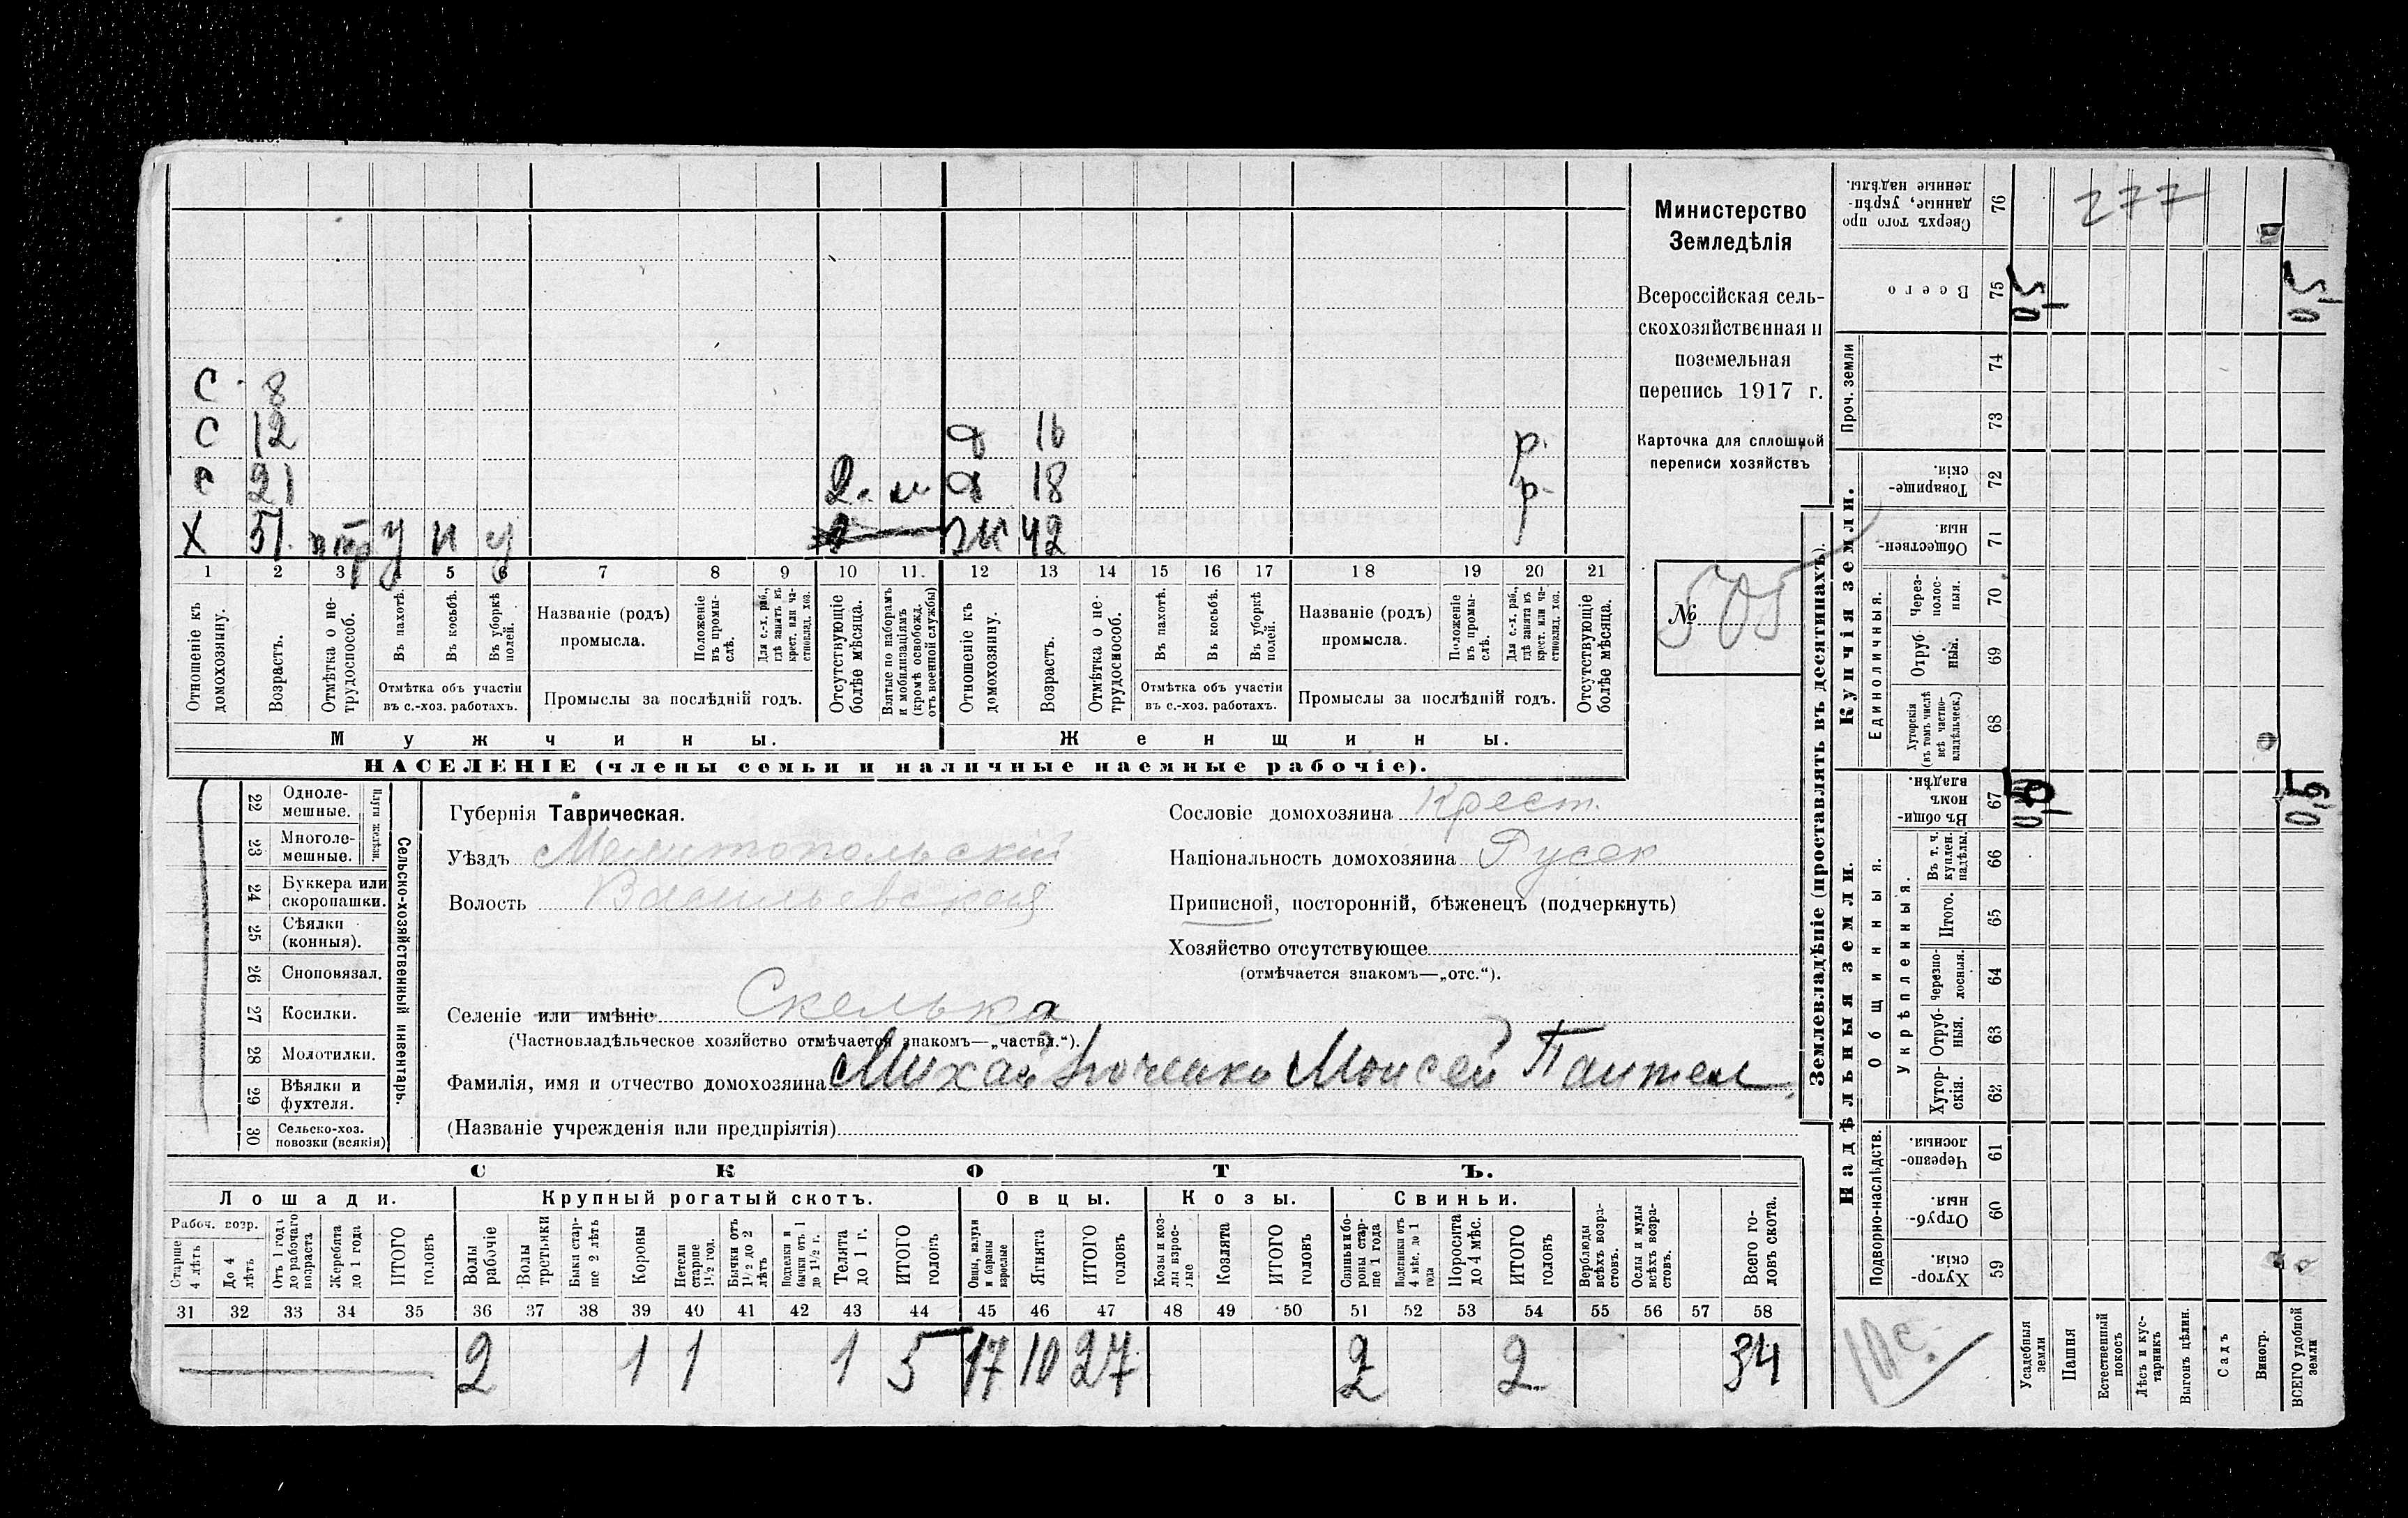 Министерство
Земледѣлія
Всероссійская сель-
скохозяйственная и
поземельная
перепись 1917 г.
Карточка для сплошной
переписи хозяйствъ
№ 505
С 8
С 12 д 16 р.
С 21 2. м д 18 р.
Х 51 у к у ж 42
1 2 3 4 5 6 7 8 9 10 11. 12 13 14 15 16 17 18 19 20 21
Отношеніе къ домохозяину.
Возрастъ.
Отмѣтка о не-трудоспособ.
Въ пахотѣ.
Въ косьбѣ.
Въ уборкѣ полей.
Отмѣтка объ участіи
въ с.-хоз. работахъ.
Названіе (родъ)
промысла.
Положеніе въ промы-слѣ.
Для с.-х. раб., гдѣ занятъ въ крест. или ча-стновлад. хоз.
Промыслы за послѣдній годъ.
Отсутствующіе болѣе мѣсяца.
Взятые по наборамъ и мобилизаціямъ (кромѣ освобожд. отъ военной службы)
Отношеніе къ домохозяину.
Возрастъ.
Отмѣтка о не-трудоспособ.
Въ пахотѣ.
Въ косьбѣ.
Въ уборкѣ полей.
Отмѣтка объ участіи
въ с.-хоз. работахъ.
Названіе (родъ)
промысла.
Положеніе въ промы-слѣ.
Для с.-х. раб., гдѣ занятъ въ крест. или ча-стновлад. хоз.
Промыслы за послѣдній годъ.
Отсутствующіе болѣе мѣсяца.
Мужчины. Женщины.
НАСЕЛЕНІЕ (члены семьи и наличные наемные рабочіе).
22 Одноле-мешные.
23 Многоле-мешные.
Плуги желѣзн.
24 Буккера или скоропашки.
25 Сѣялки (конныя).
26 Сноповязал.
27 Косилки.
28 Молотилки.
29 Вѣялки и фухтеля.
30 Сельско-хоз. повозки (всякія)
Сельско-хозяйственный инвентарь.
Губернія Таврическая.
Уѣздъ Мелитопольскій
Волость Васильевская
Селеніе или имѣніе Скелька
(Частновладѣльческое хозяйство отмѣчается знакомъ—„частвл.“).
Фамилія, имя и отчество домохозяина Моисей Пантел
(Названіе учрежденія или предпріятія)
Сословіе домохозяина Крест.
Національность домохозяина Русск
Приписной, посторонній, бѣженецъ (подчеркнуть)
Хозяйство отсутствующее
(отмѣчается знакомъ—„отс.“).
СКОТЪ.
Лошади. Крупный рогатый скотъ. Овцы. Козы. Свиньи.
Рабоч. возр.
Старше 4 лѣтъ
До 4 лѣтъ
Отъ 1 года до рабочаго возраста
Жеребята до 1 года
ИТОГО головъ
Волы рабочіе
Волы третьяки
Быки стар-ше 2 лѣтъ
Коровы
Нетели старше 1½ год.
Бычки отъ 1½ до 2 лѣтъ
Подтелки и бычки отъ 1 до 1½ г.
Телята до 1 г.
ИТОГО головъ
Овцы, валухи и бараны взрослые
Ягнята
ИТОГО головъ
Козы и коз-лы взрос-лые
Козлята
ИТОГО головъ
Свиньи и бо-ровы стар-ше 1 года
Подсвинки отъ 4 мѣс. до 1 года
Поросята до 4 мѣс.
ИТОГО головъ
Верблюды всѣхъ возра-стовъ.
Ослы и мулы всѣхъ возра-стовъ.
Всего го-ловъ скота.
31 32 33 34 35 36 37 38 39 40 41 42 43 44 45 46 47 48 49 50 51 52 53 54 55 56 57 58
2 1 1 1 5 17 10 27 2 2 34
Землевладѣніе (проставлять въ десятинахъ).
Купчія земли.
Надѣльныя земли.
277
Сверхъ того про-данные, укрѣп-ленные надѣлы. 76
Всего 75 0,5 0,5
Проч. земли 74
73
Товарище-скія. 72
Обществен-ныя. 71
Единоличныя.
Через-полос-ныя. 70
Отруб-ныя. 69
Хуторскія (въ томъ числѣ всѣ частно-владѣльческ.) 68
Общинныя.
Въ общи-номъ владѣн. 67 0,5 0,5
Укрѣпленныя.
Въ т. ч. куплен. надѣлы. 66
Итого. 65
Черезпо-лосныя. 64
Отруб-ныя. 63
Хутор-скія. 62
Подворно-наслѣдств.
Черезпо-лосныя 61
Отруб-ныя 60
Хутор-скія. 59
Усадебныя земли
Пашня
Естественный покосъ
Лѣсъ и кус-тарникъ
Выгонъ цѣлин.
Садъ
Виногр.
ВСЕГО удобной земли